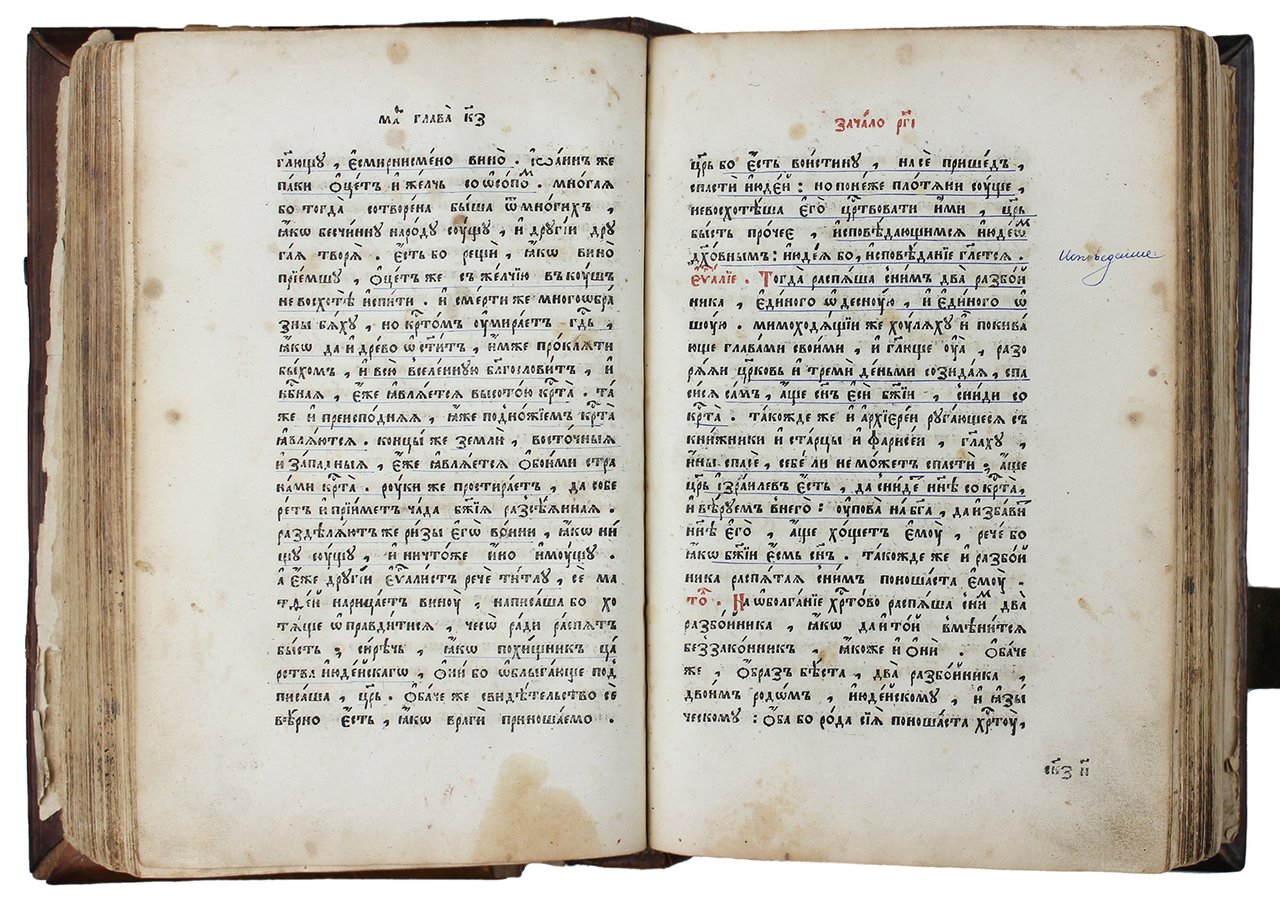 маⷴ҇ глава̀ к҃з
гл҃ющу , є҆смирнисме́но вино̀ . і҆ѡа́ннъ же
па́ки ѻ҆́цетъ и҆ же́лчь со ѡ҆со́поⷨ . мно́гая
бо тогда̀ сотворе́на бы́ша ѿ мно́гихъ ,
ꙗ҆́кѡ безчи́нну наро́ду сꙋ́щу , и҆ дрꙋгі́й дрꙋ
га́я творѧ̀ . є҆́сть бо рещѝ , ꙗ҆́кѡ вино̀
прїе́мшу , ѻ҆́цетъ же с же́лчїю вкꙋ́шь
не восхотѣ̀ и҆спи́ти . и҆ сме́рти же многоѡбра́
зны бѧ́ху , но крⷭ҇то́мъ ᲂу҆мира́етъ гдⷭ҇ь ,
ꙗ҆́кѡ да и҆ дре́во ѡ҆ст҃и́тъ , и҆́мже про́клѧти
бы́хомъ , и҆ всю̀ вселе́нную благослови́тъ , и҆
нбⷭ҇ная , є҆́же ꙗ҆влѧ́ется высото́ю крⷭ҇та̀ . та́
же и҆ преиспо́дняя , ꙗ҆́же подно́жїемъ крⷭ҇та̀
ꙗ҆влѧ́ются . концы́ же землѝ , восто́чныя
и҆ за́падныя , є҆́же ꙗ҆влѧ́ется ѻ҆бои́ми стра
на́ми крⷭ҇та̀ . рꙋ́ки же простира́етъ , да собе
ре́тъ и҆ прїи́метъ ча́да бж҃їя разсѣ́янная .
раздѣлѧ́ютъ же ри́зы є҆гѡ̀ во́ини , ꙗ҆́кѡ ни́
щу сꙋ́щу , и҆ ничто́же и҆́но и҆мꙋ́щу .
а҆ є҆́же дрꙋгі́й є҆ѵⷢ҇али́стъ речѐ ти́тлу , сѐ ма
тѳе́й нарица́етъ винꙋ̀ , написа́ша бо хо
тѧ́ще ѡ҆правди́тися , чесѡ̀ ра́ди распѧ́тъ
бы́сть , си́рѣчь , ꙗ҆́кѡ похи́щникъ ца́
рства и҆юде́йскагѡ , ѻ҆ни́ бо ѡ҆блыга́юще под̾
писа́ша , цр҃ь . ѻ҆ба́че же свидѣ́тельство сѐ
вѣ́рно є҆́сть , ꙗ҆́кѡ врагѝ приноша́емо .
зача́ло рг҃і
цр҃ь бо є҆́сть вои́стину , на сѐ прише́дъ ,
спастѝ и҆юде́й : но поне́же плотѧ́ни сꙋ́ще ,
невосхотѣ́ша є҆го̀ црⷭ҇твовати и҆́ми , цр҃ь
бы́сть про́чеє , и҆сповѣ́дающимся и҆юде́ѡⷨ
дх҃о́внымъ : и҆юде́я бо , и҆сповѣ́данїе гл҃ется .
є҆ѵⷢ҇алїе . Тогда̀ распѧ́ша сни́мъ два̀ разбо́й
ника , є҆ди́ного ѡ҆ деснꙋ́ю , и҆ є҆ди́ного ѡ҆
шꙋ́ю . мимоходѧ́щїи же хꙋ́ляху и҆ покива́
юще глава́ми свои́ми , и҆ гл҃юще ᲂу҆а̀ , разо
рѧ́яи цр҃ковь и҆ треми́ де́ньми созида́я , спа
си́ся са́мъ , а҆́ще сн҃ъ є҆сѝ бж҃їи , сни́ди со
крⷭ҇та̀ . та́кожде же и҆ а҆рхїере́и руга́ющеся съ
кни́жники и҆ ста́рцы и҆ фарисе́и , гл҃аху ,
и҆́ны спасѐ , себе́ ли не мо́жетъ спастѝ ; а҆́ще
цр҃ь і҆зра́илевъ є҆́сть , да сни́детъ нн҃ѣ со крⷭ҇та̀ ,
и҆ вѣ́руемъ внего̀ : ᲂу҆пова̀ на бг҃а , да и҆зба́витъ
нн҃ѣ є҆го̀ , а҆́ще хо́щетъ є҆мꙋ̀ , рече́ бо
ꙗ҆́кѡ бж҃їи є҆́смь сн҃ъ . та́кожде же и҆ разбо́й
ника распѧ́тая сни́мъ поноша́ста є҆мꙋ̀ .
то . На ѡ҆болга́нїе хрⷭ҇то́во распѧ́ша сни́ⷨ два̀
разбо́йника , ꙗ҆́кѡ да и҆ то́й вмѣни́тся
беззако́нникъ , ꙗ҆́коже и҆ ѻ҆нѝ . ѻ҆ба́че
же , ѻ҆́бразъ бѣ́ста , два̀ разбо́йника ,
двои́мъ ро́дѡмъ , и҆юде́йскому , и҆ ꙗ҆зы́
ческому : ѻ҆́ба бо ро́да сїя̀ поноша́ста хрⷭ҇тꙋ̀ ,
исповедание